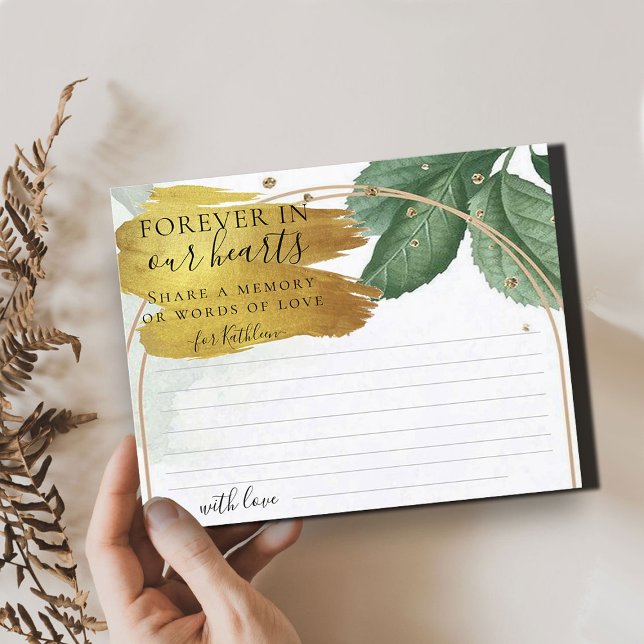 FOREVER IN
our hearts
SHARE A MEMORY
OR WORDS OF LOVE
~for Kathleen~
with love